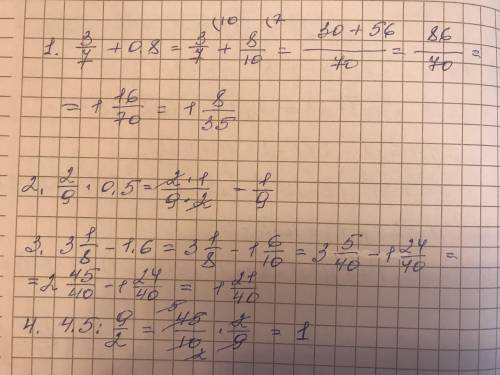 1. 3/7 + 0.8 = 3/7 (10 + 8/10 (7 = (30 + 56)/70 = 86/70 =
= 1 16/70 = 1 8/35
2. 2/9 · 0,5 = (2 · 1)/(9 · 2) - 1/9
3. 3 1/8 - 1.6 = 3 1/8 - 1 6/10 = 3 5/40 - 1 24/40 =
= 2 45/40 - 1 24/40 = 1 21/40
4. 4.5 : 9/2 = 45/10 5 2 · 2/9 = 1